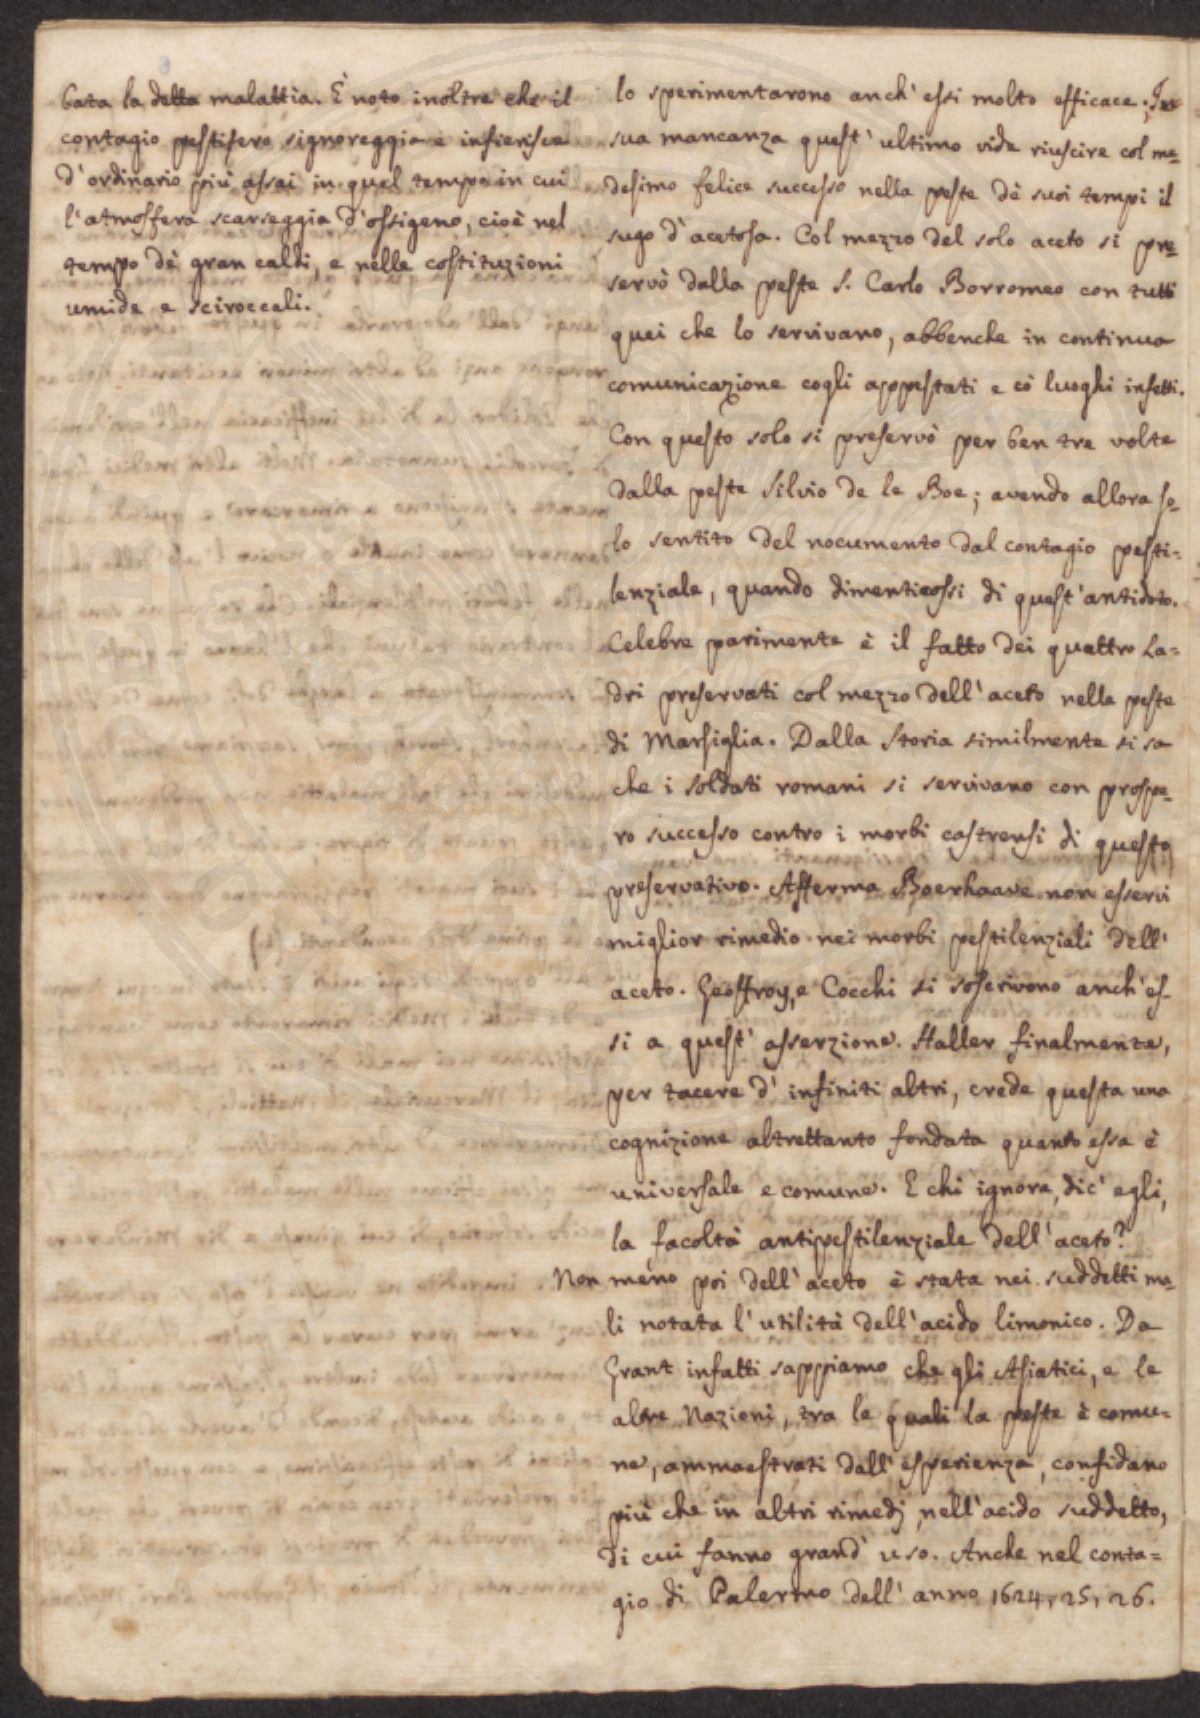 bata la detta malattia. È noto inoltre che il
contagio pestifero signoreggia e infierisce
d'ordinario più assai in quel tempo in cui
l'atmosfera scarseggia d'ossigeno, cioè nel
tempo dè gran caldi, e nelle costituzioni
umide e sciroccali.
lo sperimentarono anch'essi molto efficace. In
sua mancanza quest'ultimo vide riuscire col me=
desimo felice successo nella peste dè suoi tempi il
sugo d'acetosa. Col mezzo del solo aceto si pre=
servò dalla peste S. Carlo Borromeo con tutti
quei che lo servivano, abbenche in continua
comunicazione cogli appestati e cò luoghi infetti.
Con questo solo si preservò per ben tre volte
dalla peste Silvio de le Boe; avendo allora so=
lo sentito del nocumento dal contagio pesti=
lenziale, quando dimenticossi di quest'antidoto.
Celebre parimente è il fatto dei quattro La=
dri preservati col mezzo dell'aceto nella peste
di Marsiglia. Dalla Storia similmente si sa
che i soldati romani si servivano con prospe=
ro successo contro i morbi castrensi di questo
preservativo. Afferma Boerhaave non esservi
miglior rimedio nei morbi pestilenziali dell'
aceto. Geoffroy, e Cocchi si soscrivono anch'es=
si a quest'asserzione. Haller finalmente,
per tacere d'infiniti altri, crede questa una
cognizione altrettanto fondata quanto essa è
universale e comune. E chi ignora, dic'egli,
la facoltà antipestilenziale dell'aceto?
Non meno poi dell'aceto è stata nei suddetti ma=
li notata l'utilità dell'acido limonico. Da
Grant infatti sappiamo che gli Asiatici, e le
altre Nazioni, tra le quali la peste è comu=
ne, ammaestrati dall'esperienza, confidano
più che in altri rimedj nell'acido suddetto,
di cui fanno grand'uso. Anche nel conta=
gio di Palermo dell'anno 1624, 25, 26.